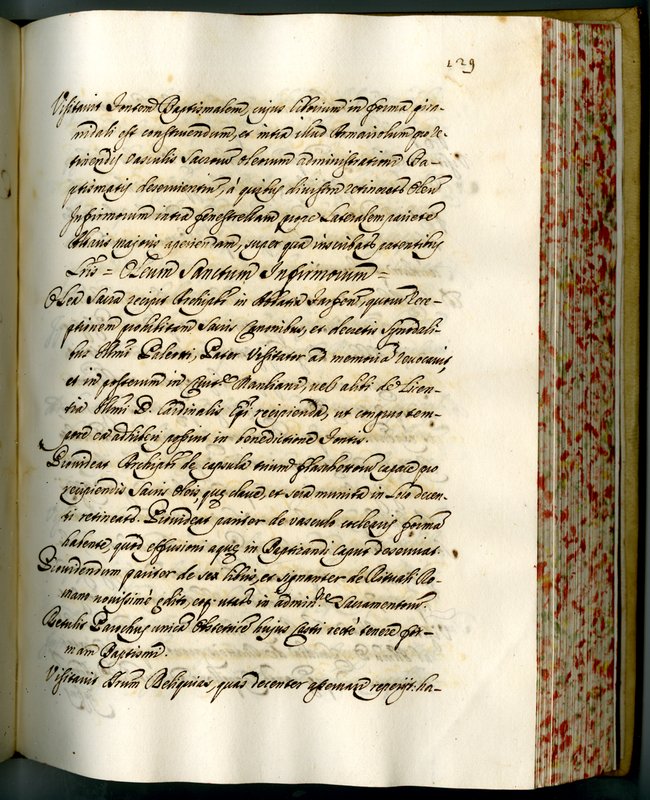 129
Visitavit Fontem Baptismalem, cujus ciborium in forma pira-
midali est construendum, et intra illud Armariolum pro re-
tinendis vasculis Sacrorum Oleorum administrationi Ba-
ptismatis deservientium, à quibus divisim retineatur Oleum
Infirmorum intra fenestrellam prope Lateralem parietem
Altaris majoris aperiendam, super qua inscribatur patentibus
Lris = Oleum Sanctum Infirmorum =
Olea Sacra recipit Archipbr in
ptionem prohibitam Sacris Canonibus, et decretis Synodali-
bus Illmi Paleotti, Pater Visitator ad memoriam revocavit,
et in posterum in Civitte vel alibi de Licen-
tia Illmi D. Cardinalis Epi recipienda, ut congruo tem-
pore ea adhiberi possint in benedictione Fontis.
Provideat Archipbr de capsula trium capace pro
recipiendis Sacris Oleis, quę clave, et sera munita in Loco decen-
ti retineatur. Provideat pariter de vasculo formam
habente, quod effusioni aquę in Baptizandi caput deserviat.
Providendum pariter de libris, et signanter de Rituali Ro-
mano novissimè edito, eoque utatur in adminne Sacramentorum.
Retulit Parochus unicam Obstetricem hujus Castri rectè tenere for-
mam Baptismi.
Visitavit Sacrarum Reliquias, quas decenter asservari reperiit: ha-